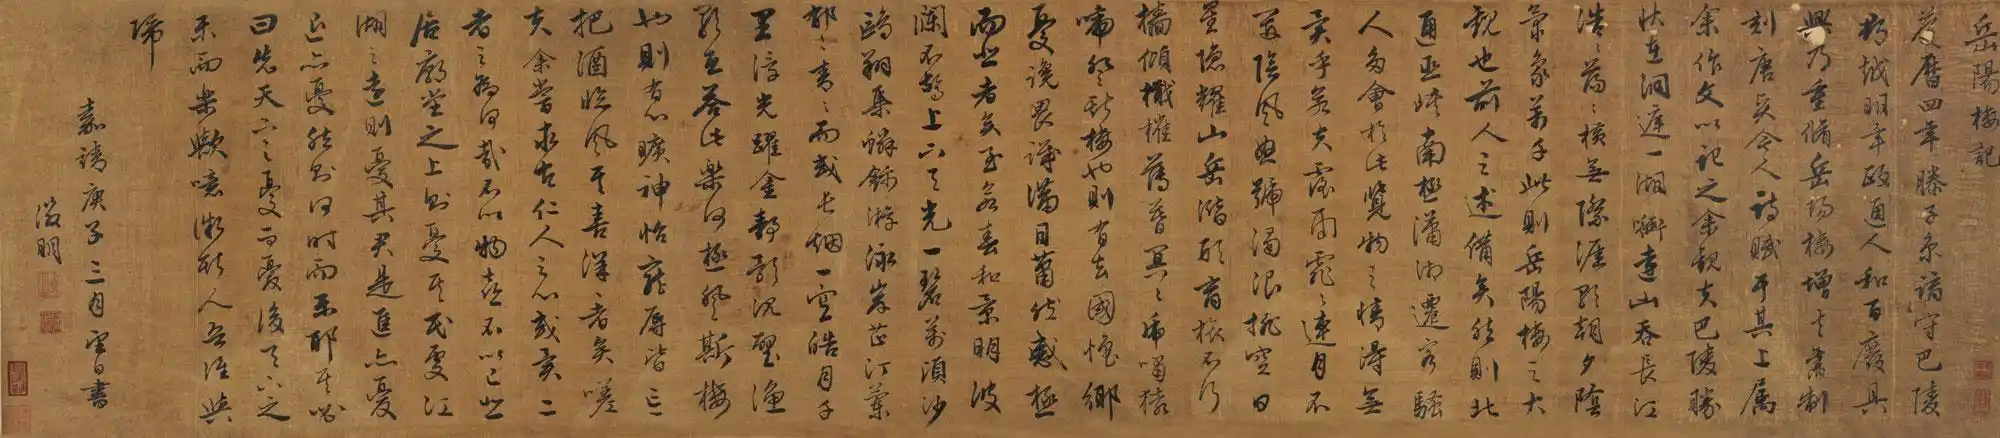 岳陽樓記
慶曆四年滕子京謫守巴陵
郡越明年政通人和百廢具
興乃重脩岳陽樓增其舊制
刻唐賢今人詩賦于其上属
余作文以記之余觀夫巴陵勝
狀在洞庭一湖啣遠山吞長江
浩〻蕩〻橫無際涯朝夕陰
氣象萬千此則岳陽樓之大
觀也前人之述備矣然則北
通巫峽南極瀟湘遷客騷
人多會於此覽物之情得無
異乎若夫霪雨霏〻連月不
開陰風怒號濁浪排空日
星隱耀山岳潛形商旅不行
檣傾檝摧薄暮冥〻虎嘯猿
啼登斯樓也則有去國懷鄉
憂讒畏譏滿目蕭然感極
而悲者矣至若春和景明波
瀾不驚上下天光一碧萬頃沙
鷗翔集鱗錦游泳岸芷汀蘭
郁〻青〻而或長烟一空皓月千
里浮光躍金静影沉璧漁
歌互答此樂何極登斯樓
也則有心曠神怡寵辱皆忘
把酒臨風其喜洋者矣嗟
夫余嘗求古仁人之心或異二
者之為何哉不以物喜不以己悲
居廟堂之上則憂其民處江
湖之遠則憂其君是進亦憂
退亦憂然則何時而樂耶其必
曰先天下之憂而憂後天下之
樂而樂歟噫微斯人吾誰與
歸
嘉靖庚子三月望日書
徵明